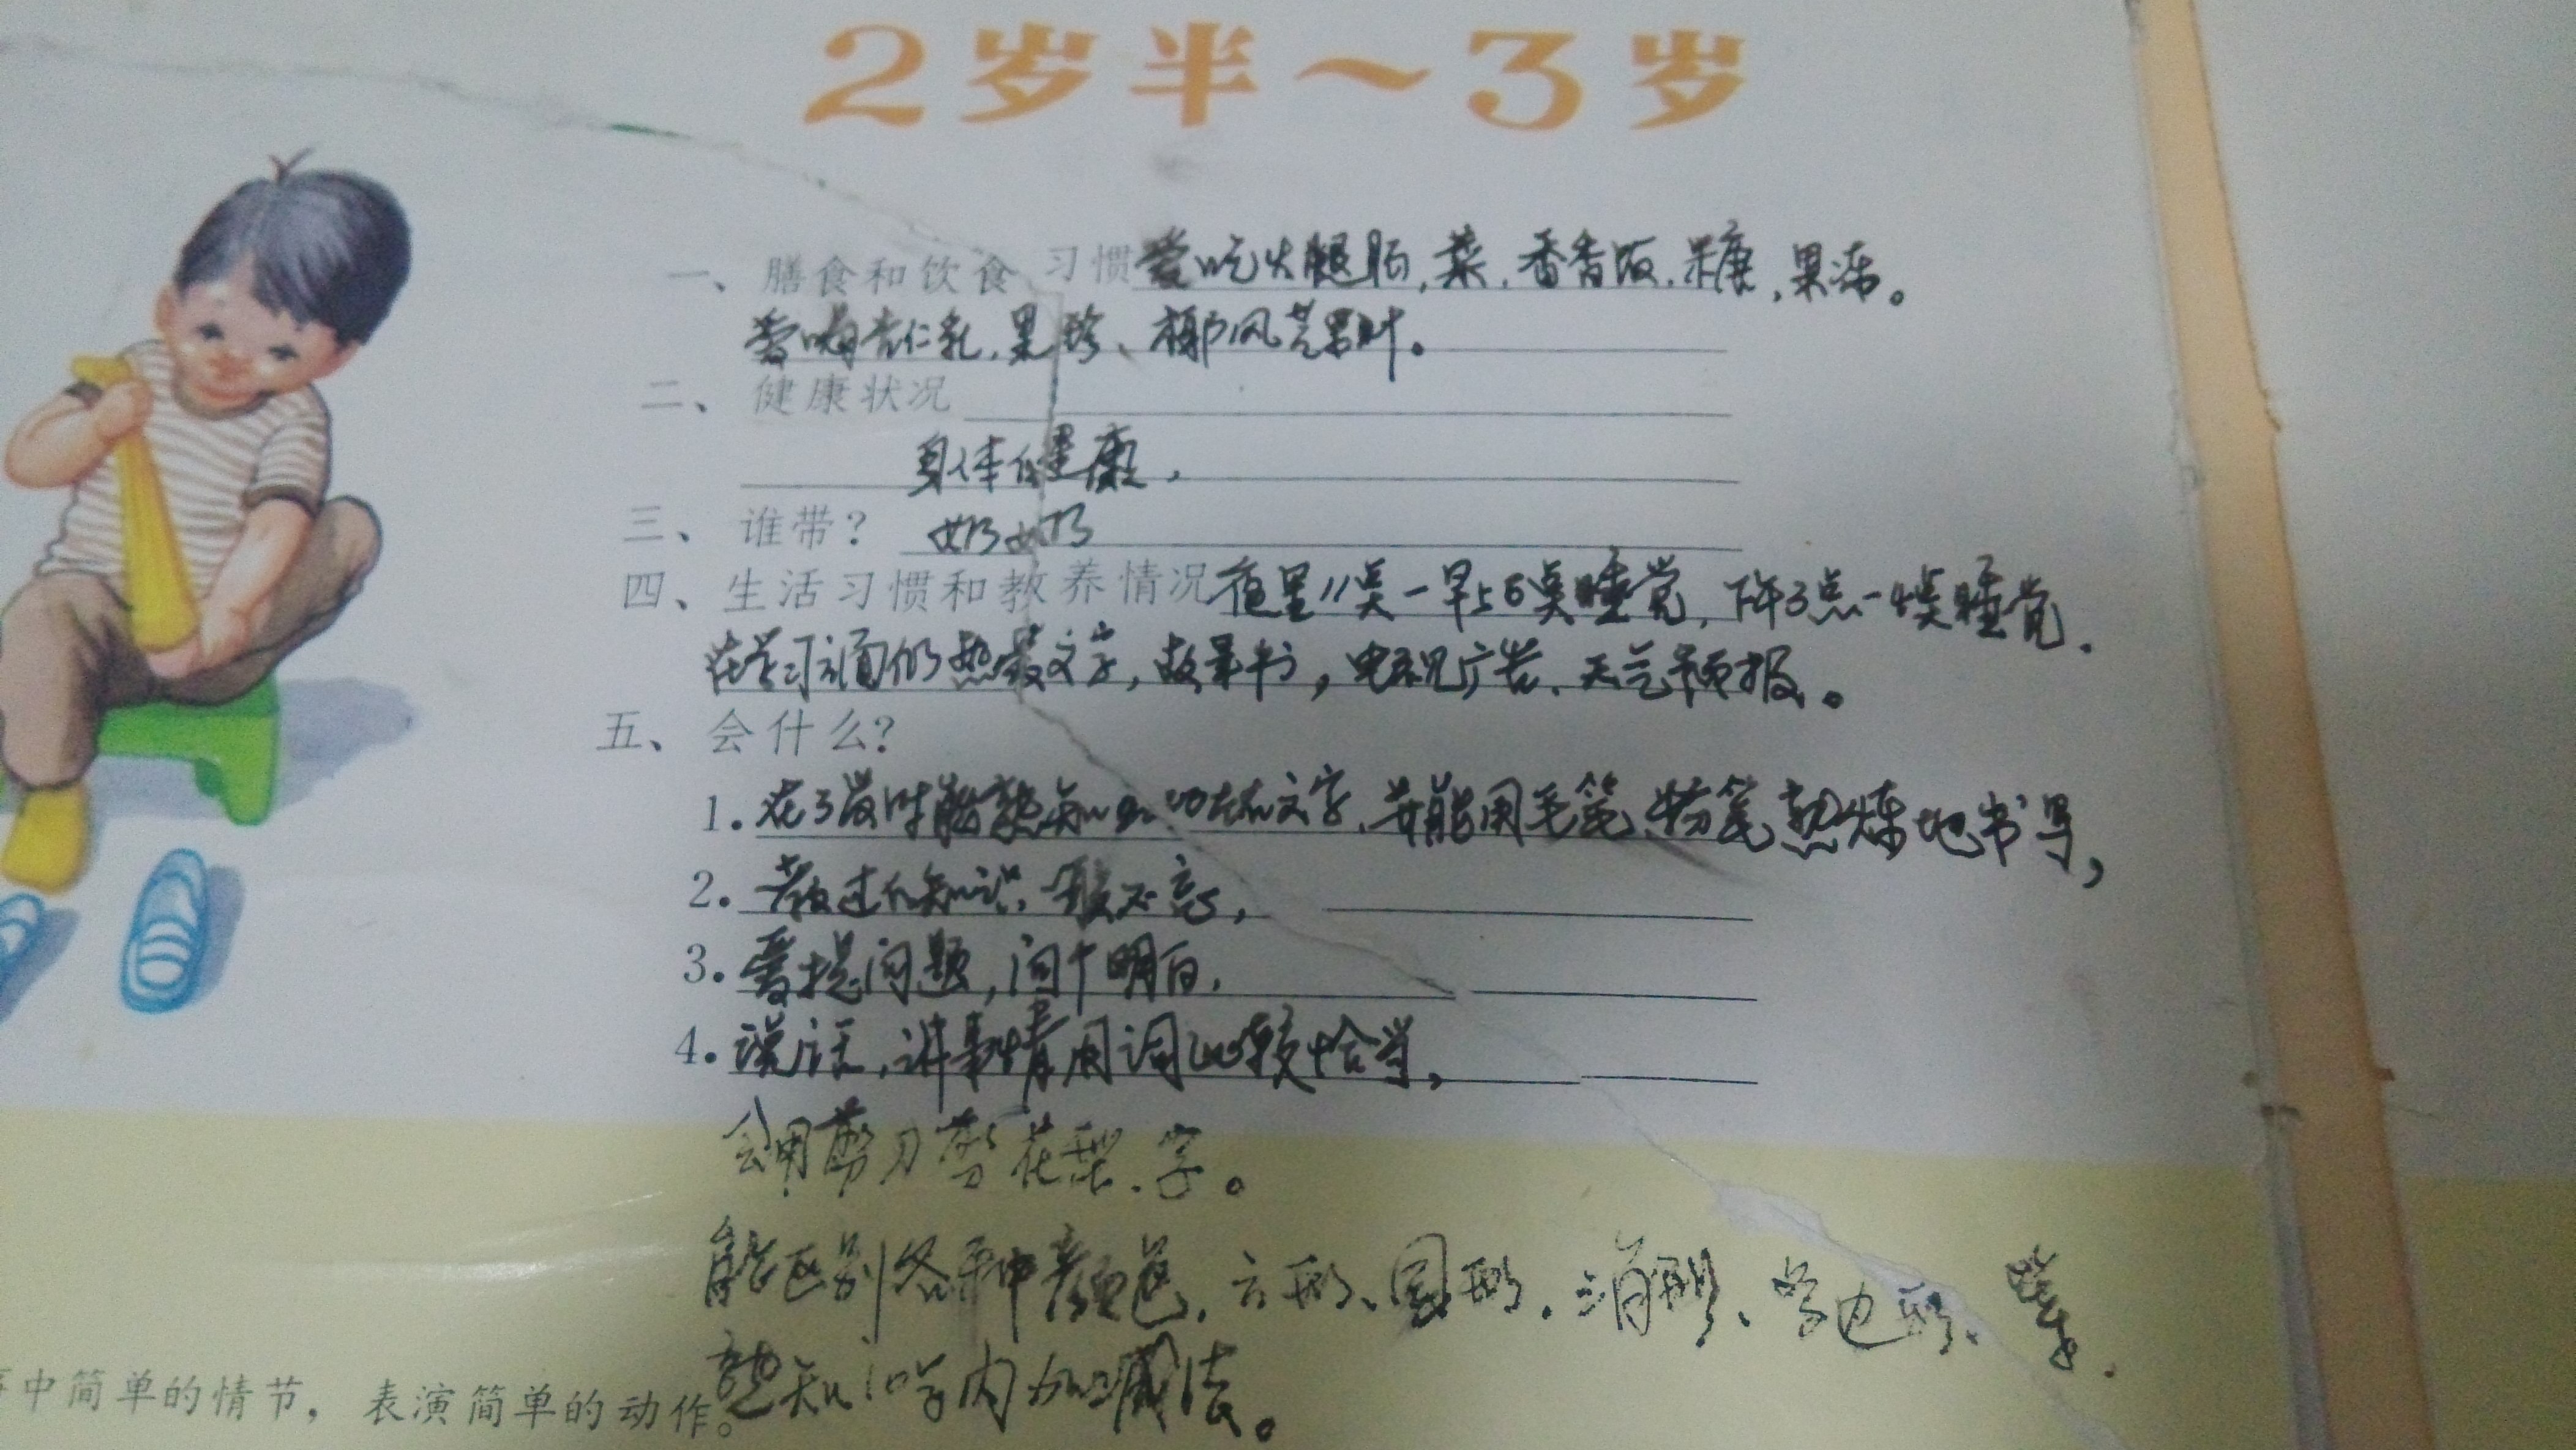 2岁半～3岁
一、膳食和饮食习惯爱吃火腿肠,菜,香香饭.糖,果冻。
爱喝杏仁乳,果珍、椰风芒果汁。
二、健康状况
身体健康,
三、谁带？奶奶
四、生活习惯和教养情况夜里11点-早上5点睡觉,下午3点-4点睡觉.
在学习方面仍热爱文字,故事书,电视广告、天气预报。
五、会什么？
1.在3岁时能熟知 文字,并能用毛笔、粉笔熟炼地书写,
2.教过的知识,一般不忘,
3.爱提问题,问个明白,
4.说话,讲事情用词比较恰当,
会用剪刀剪花型.字。
能区别各种颜色,方形、圆形.三角形、 边形、等.
熟知10字内加减法。
中简单的情节，表演简单的动作。